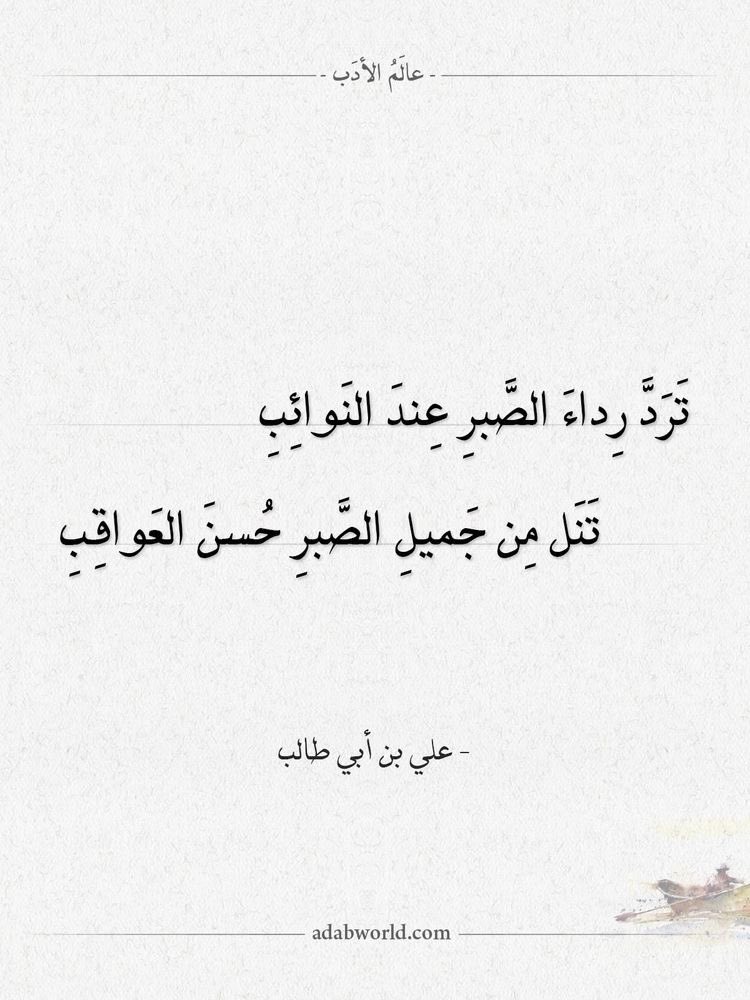 - عالَمُ الأدَب -
تَرَدَّ رِداءَ الصَّبرِ عِندَ النَوائِبِ
تَنَل مِن جَميلِ الصَّبرِ حُسنَ العَواقِبِ
- علي بن أبي طالب
adabworld.com